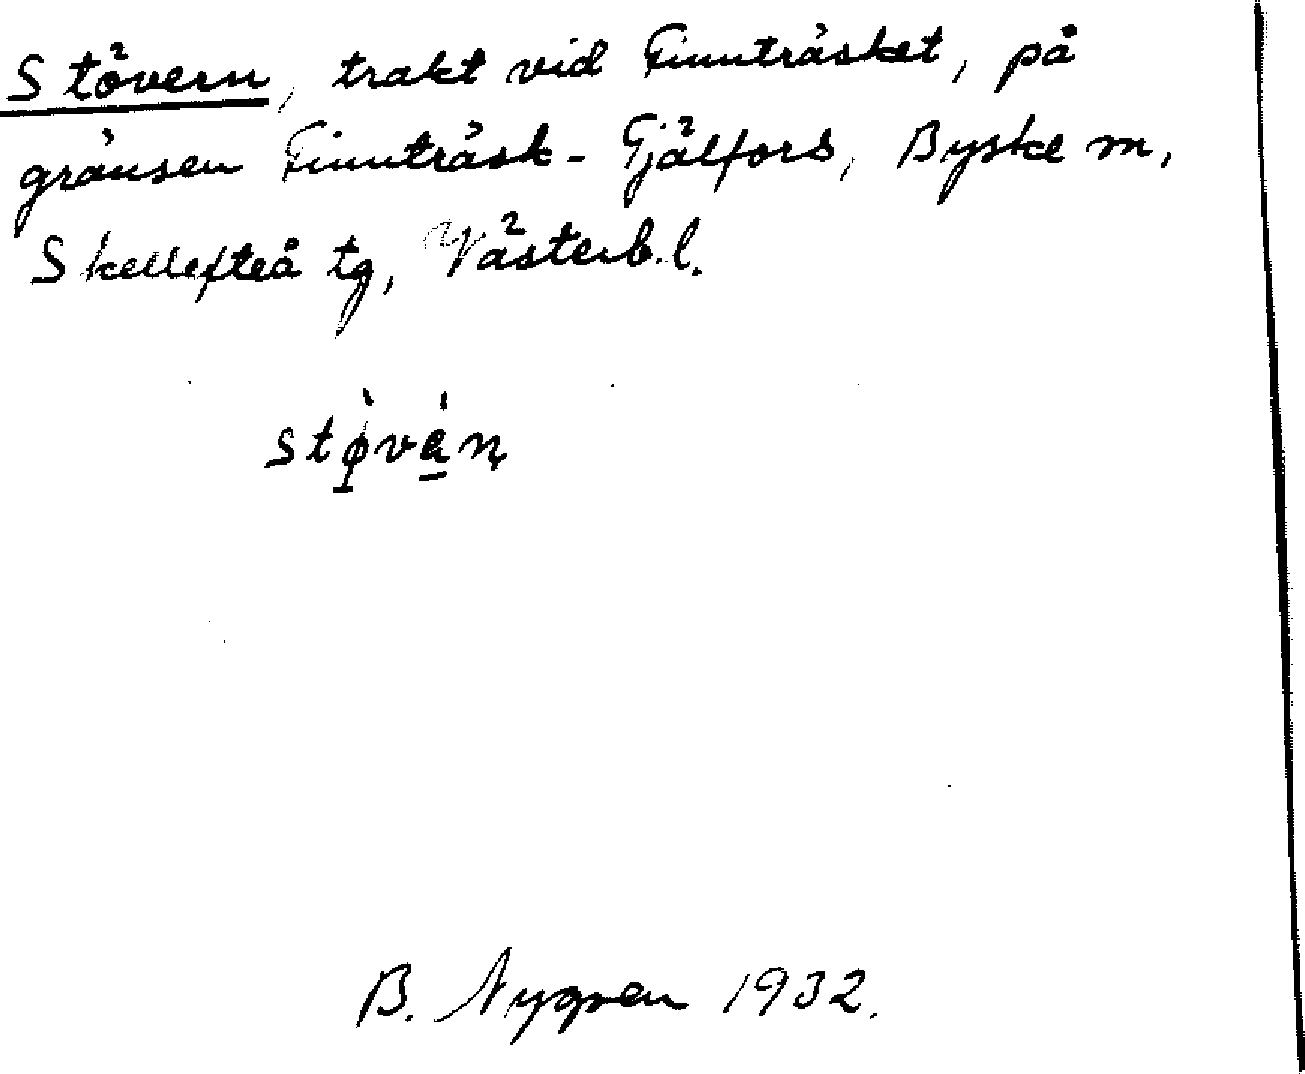 Stövern, trakt vid Finnträsket, på
gränsen Finnträsk - Fjälfors, Byske m,
Skellefteå tg, Västerb. l.
stø̀vȧṇ
B. Nygren 1932.